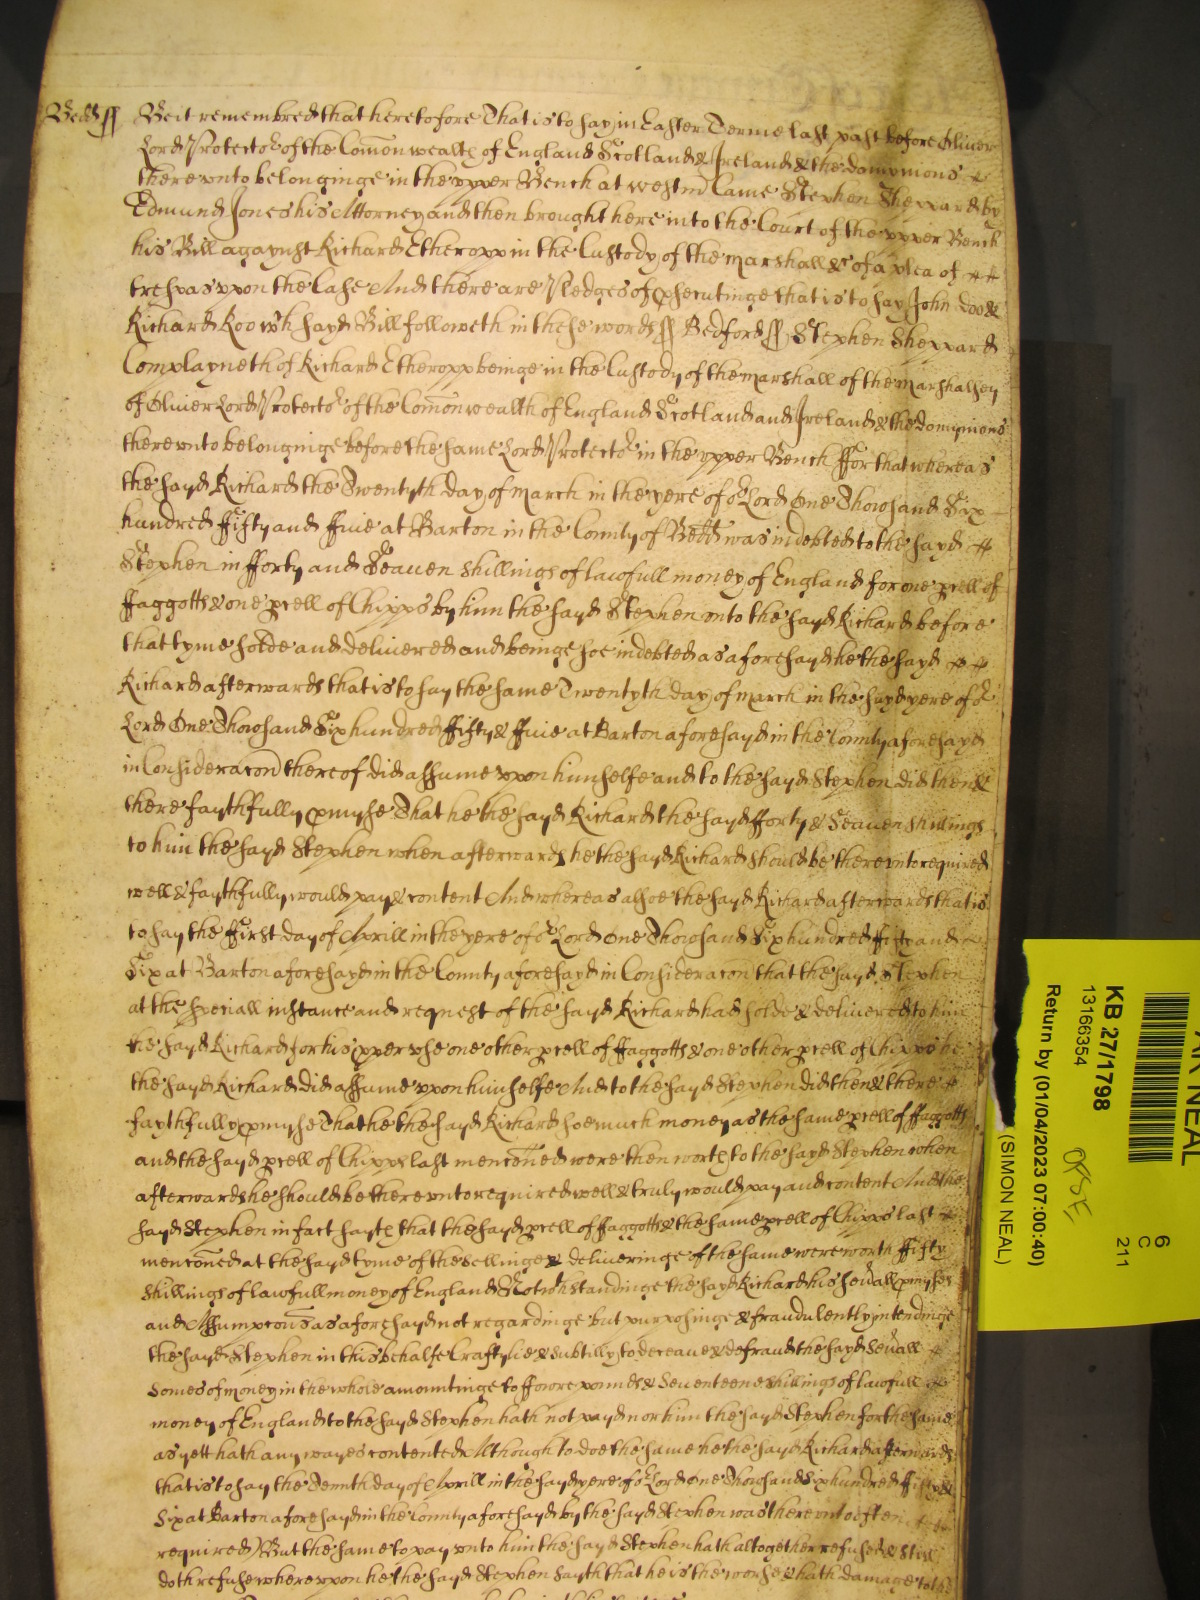 Bedd ss Be it remembred that heretofore That is to say in Easter Terme last past before Oliver
Lord Protector of the Comonwealth of England Scotland & Ireland & the domynions
therevnto belonginge in the vpper Bench at westm Came Stephen Sheppard by
Edmund Jones his Attorney and then brought here into the Court of the vpper Bench
his Bill agaynst Richard Etheropp in the Custody of the marshall &c of a plea of
trespas vpon the Case And there are Pledges of psecutinge that is to say John Doo &
Richard Roo wch sayd Bill followeth in these words ss Bedford ss Stephen Sheppard
Complayneth of Richard Etheropp beinge in the Custody of the marshall of the marshalsey
of Oliver Lord Protector of the Comonwealth of England Scotland and Ireland & the domynions
therevnto belonginge before the same Lord Protector in the vpper Bench ffor that whereas
the sayd Richard the Twentyth day of march in the yere of or Lord One Thowsand Six
hundred ffifty and ffiue at Barton in the County of Bedd was indebted to the sayd
Stephen in fforty and Seauen shillings of lawfull money of England for one pcell of
ffaggotts & one pcell of Chipps by him the sayd Stephen vnto the sayd Richard before
that tyme solde and deliuered and beinge soe indebted as aforesayd he the sayd
Richard afterwards that is to say the same Twentyth day of march in the sayd yere of or
Lord One Thowsand Six hundred ffifty & ffiue at Barton aforesayd in the County aforesayd
in Consideracon thereof did assume vpon himselfe and to the sayd Stephen did then &
there faythfully pmyse That he the sayd Richard the sayd fforty & Seauen shillings
to him the sayd Stephen when afterwards he the sayd Richard should be therevnto required
well & faythfully would pay & content And whereas alsoe the sayd Richard afterwards that is
to say the ffirst day of Aprill in the yere of or Lord One Thowsand Six hundred ffifty and
Six at Barton aforesayd in the County aforesayd in Consideracon that the sayd Stephen
at the speciall instance and request of the sayd Richard had solde & deliuered to him
the sayd Richard for his pper vse one other pcell of ffaggotts & one other pcell of Chipps he
the sayd Richard did assume vpon himselfe And to the sayd Stephen did then & there
faythfully pmyse That he the sayd Richard soe much money as the same pcell of ffaggotts
and the sayd pcell of Chipps last menconed were then worth to the sayd Stephen when
afterwards he should be therevnto required well & truly would pay and content And the
sayd Stephen in fact sayth that the sayd pcell of ffaggotts & the same pcell of Chipps last
menconed at the sayd tyme of the sellinge & deliueringe of the same were worth ffifty
shillings of lawfull money of England Notwthstandinge the sayd Richard his seuall pmyses
and Assumpcons as aforesayd not regardinge but purposinge & fraudulently intendinge
the sayd Stephen in this behalfe Craftylie & subtilly to deceaue & defraud the sayd seuall
somes of money in the whole amountinge to ffowre pounds & Seuenteene shillings of lawfull
money of England to the sayd Stephen hath not payd nor him the sayd Stephen for the same
as yett hath any wayes contented Although to doe the same he the sayd Richard afterwards
that is to say the Tennth day of Aprill in the sayd yere of or Lord One Thowsand Six hundred ffifty &
Six at Barton aforesayd in the County aforesayd by the sayd Stephen was therevnto often
required) But the same to pay vnto him the sayd Stephen hath altogether refused & still
doth refuse wherevpon he the sayd Stephen sayth that he is the worse & hath damage to the
KB 27/1798
13166354
Return by (01/04/2023 07:00:40)
(SIMON NEAL)
6
C
211
NEAL